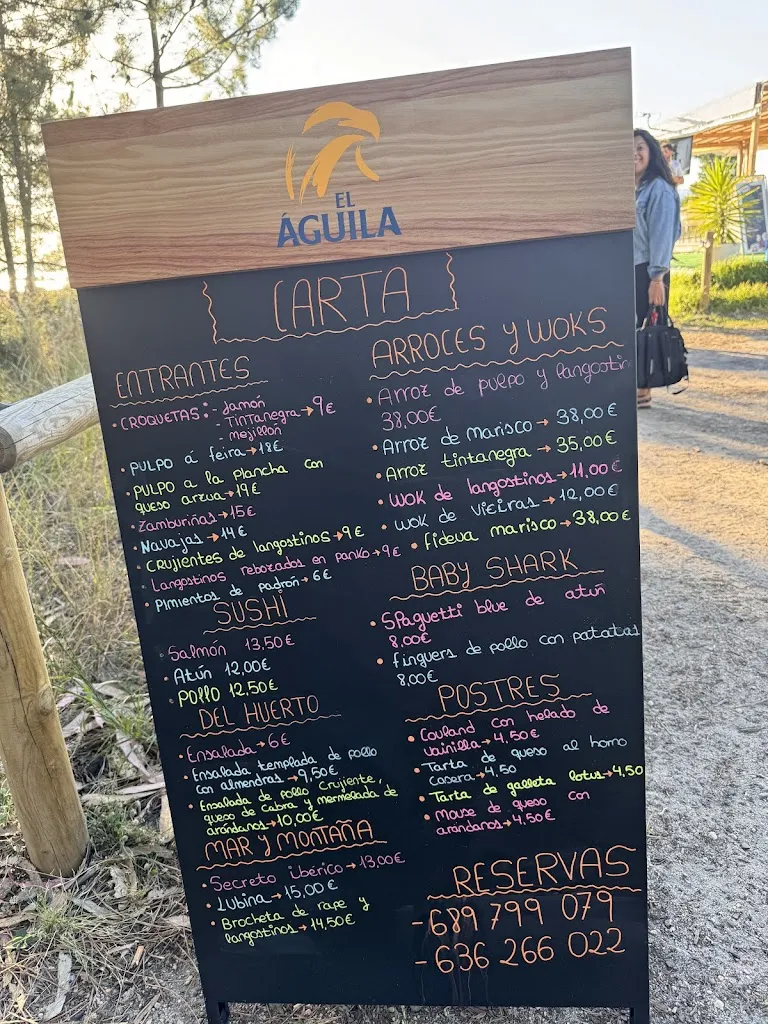 EL
ÁGUILA
CARTA
ENTRANTES
• CROQUETAS: - Jamón
- Tintanegra → 9€
- mejillón
• PULPO á feira → 18€
• PULPO a la plancha con
queso arzua → 19€
• Zamburiñas → 15€
• Navajas → 14€
• Crujientes de langostinos → 9€
• Langostinos rebozados en panko → 9€
• Pimientos de padrón → 6€
SUSHI
• Salmón 13,50€
• Atún 12,00€
• Pollo 12,50€
DEL HUERTO
• Ensalada → 6€
• Ensalada templada de pollo
con almendras → 9,50€
• Ensalada de pollo crujiente,
queso de cabra y mermelada de
arándanos → 10,00€
MAR Y MONTAÑA
• Secreto ibérico → 13,00€
• Lubina → 15,00€
• Brocheta de rape y
langostinos → 14,50€
ARROCES Y WOKS
• Arroz de pulpo y langostin
38,00€
• Arroz de marisco → 38,00€
• Arroz tintanegra → 35,00€
• Wok de langostinos → 11,00€
• Wok de vieiras → 12,00€
• fideva marisco → 38,00€
BABY SHARK
• Spaguetti blue de atún
8,00€
• finguers de pollo con patatas
8,00€
POSTRES
• Couland con helado de
vainilla → 4,50€
• Tarta de queso al horno
casera → 4,50
• Tarta de galleta lotus → 4,50
• Mouse de queso con
arándanos → 4,50€
RESERVAS
- 689 799 079
- 636 266 022